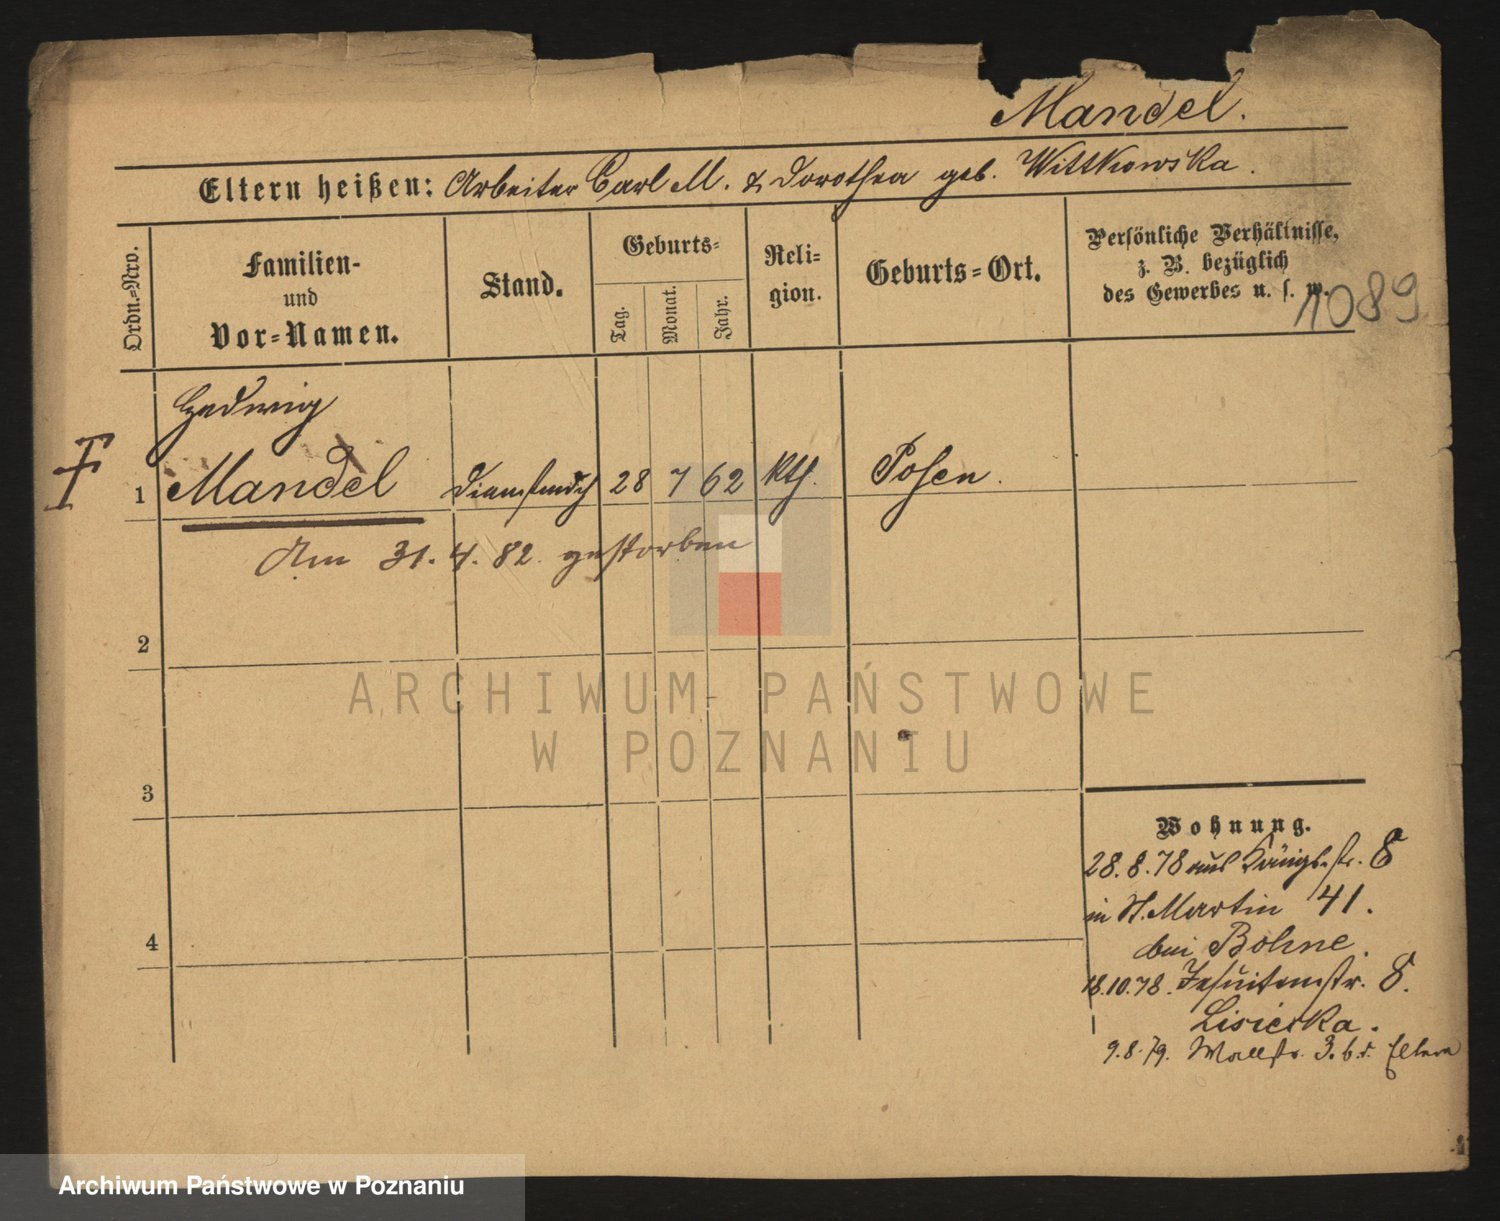 Mandel.
Eltern heißen: Arbeiter Carl M. & Dorothea geb. Wittkowska.
Ordn.=Nro.
Familien-
und
Vor=Namen.
Stand.
Geburts=
Tag.
Monat.
Jahr.
Reli=
gion.
Geburts=Ort.
Persönliche Verhältnisse,
z. B. bezüglich
des Gewerbes u. s. w.
1089
Hedwig
1 Mandel Dienstmdch 28 7 62 kth. Posen.
Am 31. 4. 82. gestorben
2
3
4
Wohnung.
28. 8. 78 aus Königsstr. 8
in St. Martin 41.
bei Bohne.
18. 10. 78. Jesuitenstr. 8.
9. 8. 79. Wallstr. 3. b. d. Eltern
ARCHIWUM PAŃSTWOWE
W POZNANIU
Archiwum Państwowe w Poznaniu